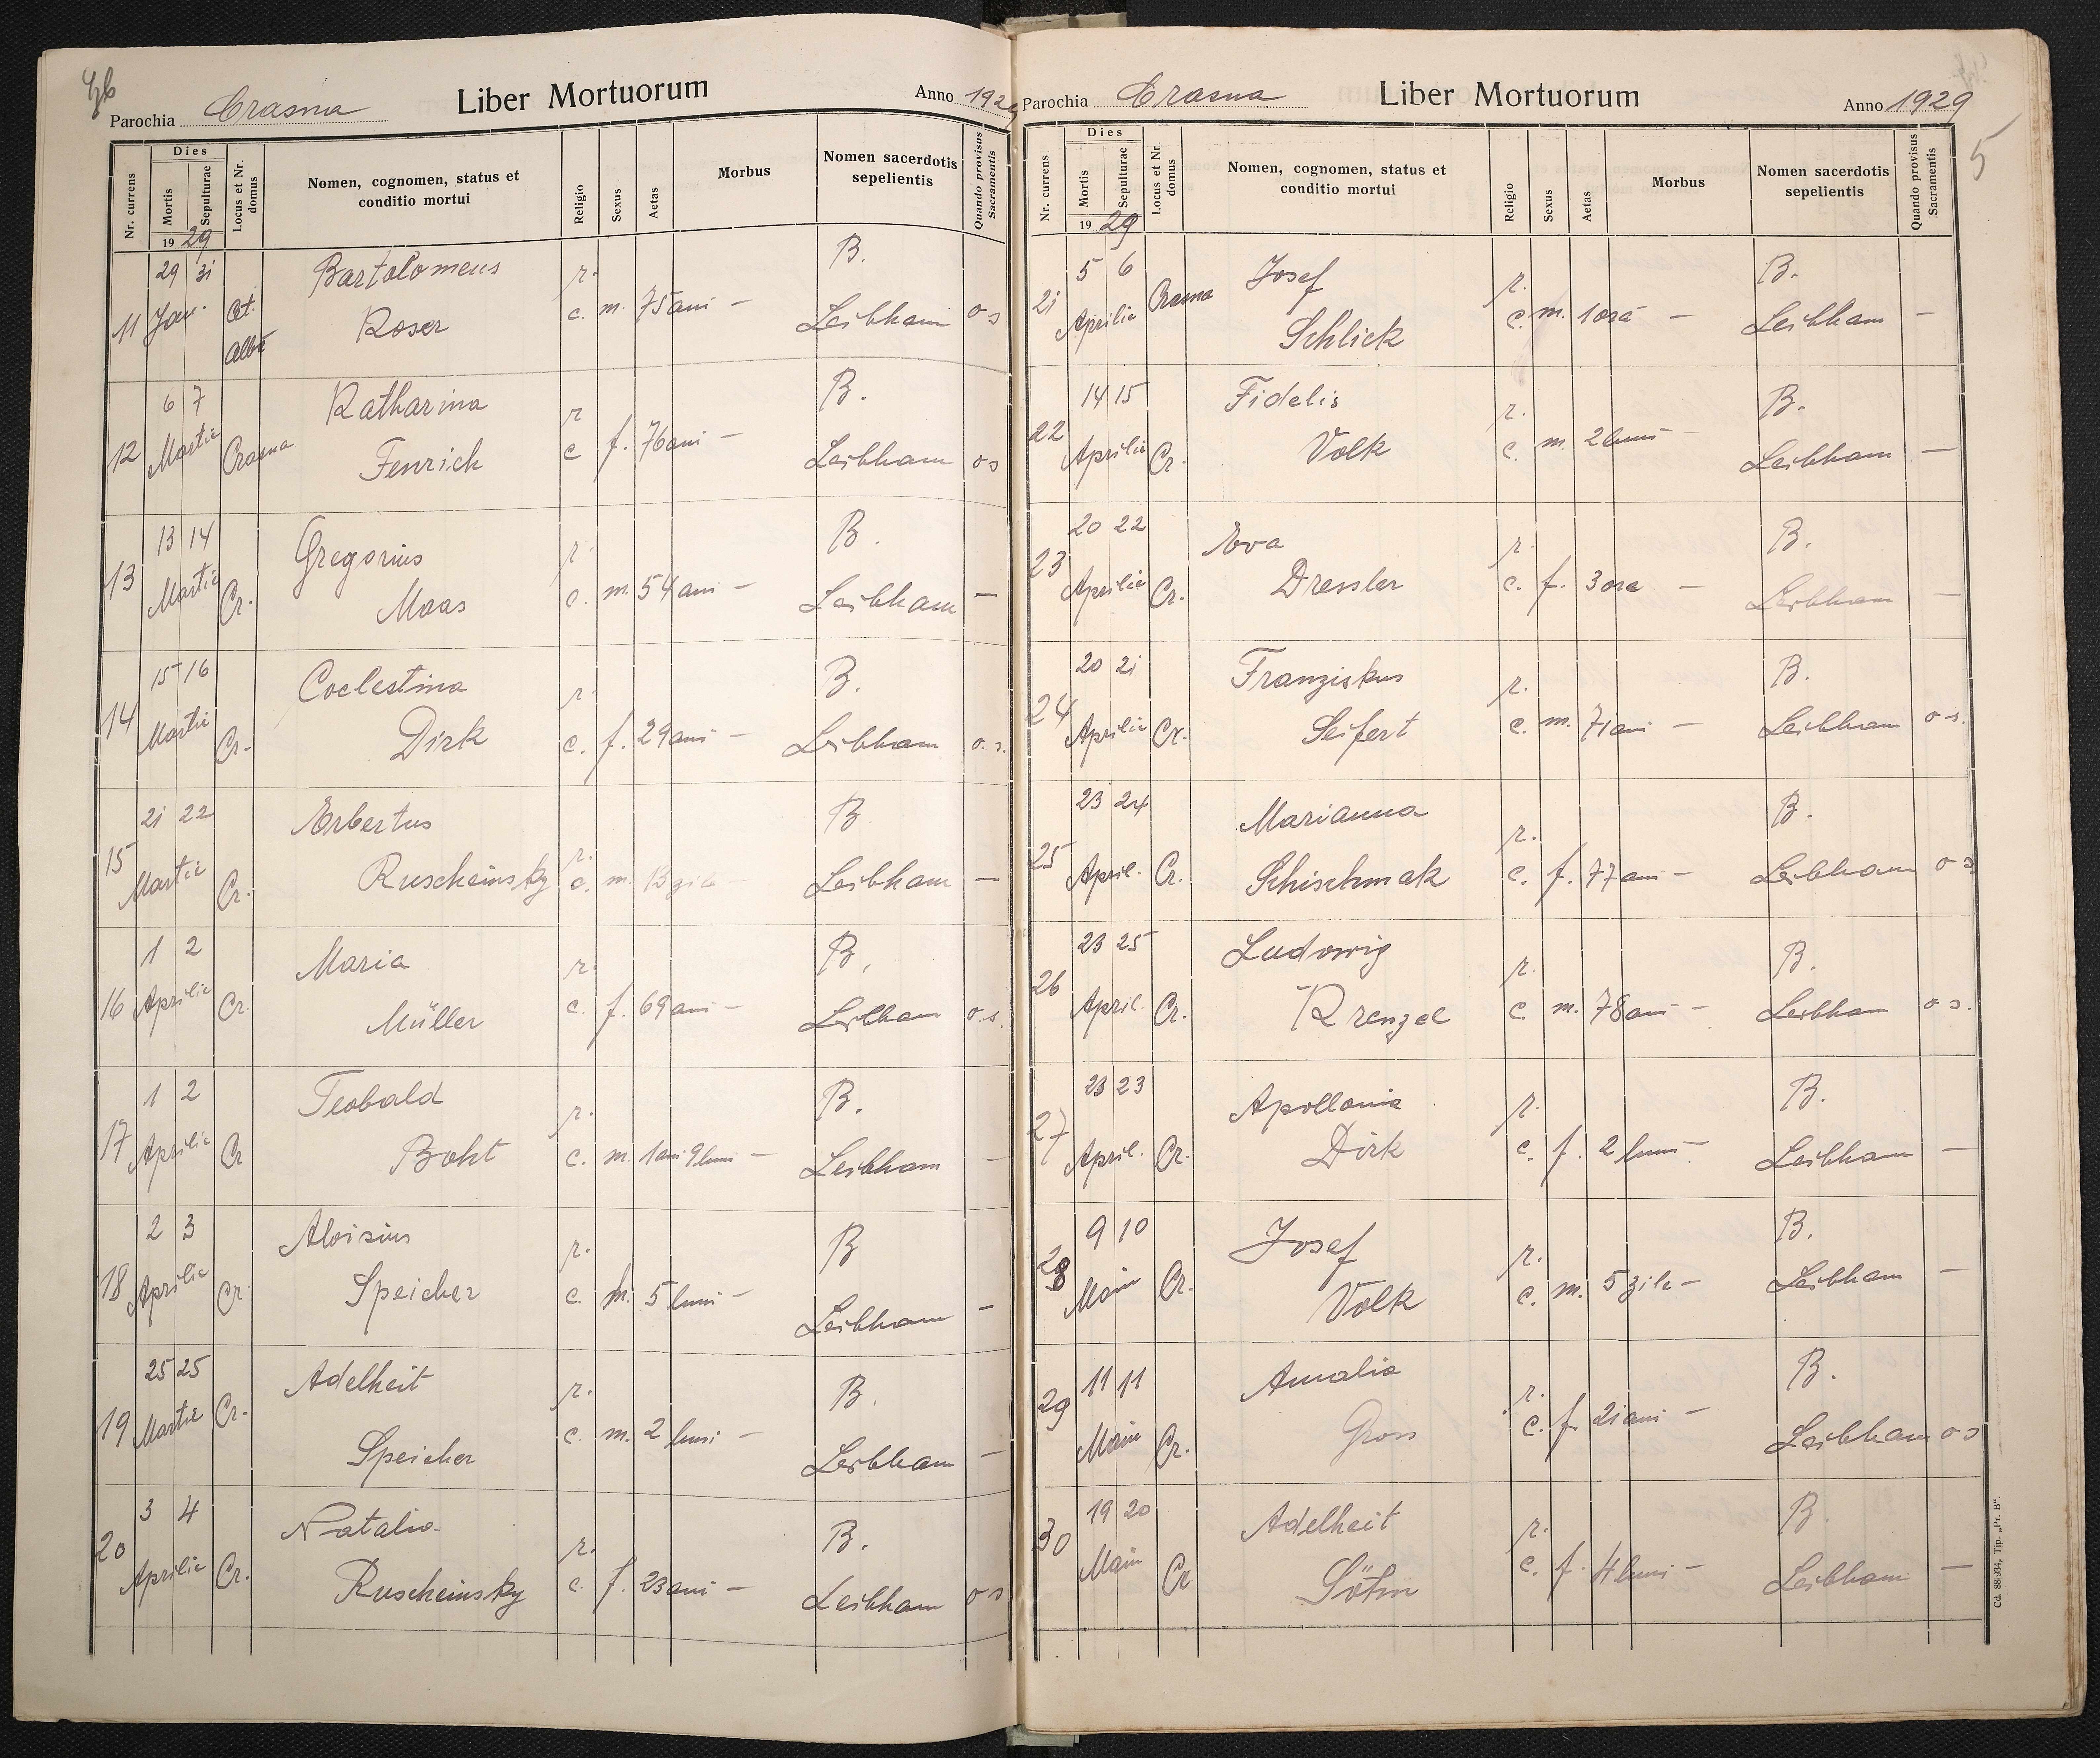 46
Parochia Crasna Liber Mortuorum Anno 1929
Nr. currens
Dies
Mortis
Sepulturae
19 29
Locus et Nr. domus
Nomen, cognomen, status et
conditio mortui
Religio
Sexus
Aetas
Morbus
Nomen sacerdotis
sepelientis
Quando provisus
Sacramentis
29 31 Bartolomeus r. B.
11 Jan. Cet. Albă Roser c. m. 75 ani - Leibham o s
6 7 Katharina r B.
12 Martie Crasna Fenrich c f. 76 ani - Leibham o s
13 14 Gregorius r. B.
13 Martie Cr. Maas c. m. 54 ani - Leibham -
15 16 Coelestina r. B.
14 Martie Cr. Dirk c. f. 29 ani - Leibham o. s.
21 22 Erbertus r. B
15 Martie Cr. Ruscheinsky c. m. 13 zile - Leibham -
1 2 Maria r. B.
16 Aprilie Cr. Müller c. f. 69 ani - Leibham o. s.
1 2 Teobald r. B.
17 Aprilie Cr Boht c. m. 1 an 9 luni - Leibham -
2 3 Aloisius r. B
18 Aprilie Cr. Speicher c. m. 5 luni - Leibham -
25 25 Adelheit r. B.
19 Martie Cr. Speicher c. m. 2 luni - Leibham -
3 4 Natalia r. B.
20 Aprilie Cr. Ruscheinsky c. f. 23 ani - Leibham o s
Parochia Crasna Liber Mortuorum Anno 1929
5
Nr. currens
Dies
Mortis
Sepulturae
19 29
Locus et Nr. domus
Nomen, cognomen, status et
conditio mortui
Religio
Sexus
Aetas
Morbus
Nomen sacerdotis
sepelientis
Quando provisus
Sacramentis
5 6 Josef r. B.
21 Aprilie Crasna Schlick c. m. 1 oră - Leibham -
14 15 Fidelis r. B.
22 Aprilie Cr. Volk c. m. 2 luni - Leibham -
20 22 Eva r. B.
23 Aprilie Cr. Dressler c. f. 3 ore - Leibham -
20 21 Franziskus r. B.
24 Aprilie Cr. Seifert c. m. 71 ani - Leibham o s.
23 24 Marianna r. B.
25 April. Cr. Schischmak c. f. 77 ani - Leibham o s
23 25 Ludowig r. B.
26 April. Cr. Krenzel c m. 78 ani - Leibham o s.
23 23 Apollonia r. B.
27 April. Cr. Dirk c. f. 2 luni - Leibham -
9 10 Josef r. B.
28 Main Cr. Volk c. m. 5 zile - Leibham -
11 11 Amalia r. B.
29 Main Cr. Gross c. f. 21 ani - Leibham o s
19 20 Adelheit r. B.
30 Main Cr Söhn c. f. 4 luni - Leibham -
Cd. 88934, Tip. „Pr. B".